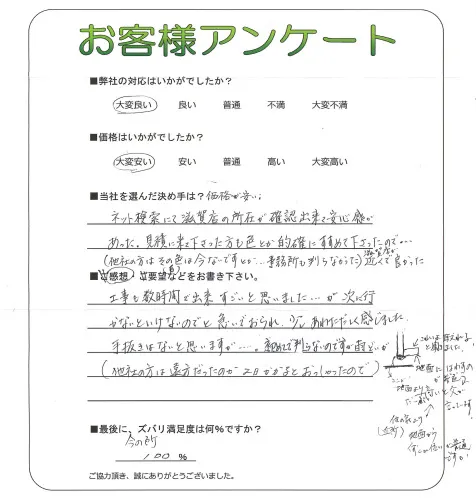 お客様アンケート
■弊社の対応はいかがでしたか?
大変良い 良い 普通 不満 大変不満
■価格はいかがでしたか?
大変安い 安い 普通 高い 大変高い
■当社を選んだ決め手は?価格が安い;
ネット検索にて滋賀店の所在が確認出来て安心感が
あった。見積に来て下さった方も色とか的確に すすめて下さったので…
(他社の方は その色は今ないですとか… 事務所も判らなかった) 近くて良かった
■ご感想・ご要望などをお書き下さい。
工事も数時間で出来 すごいと思いました…が 次に行
かないといけないのでと 急いでおられ、少し あわただしく感じました。
手抜きはないと思いますが…。初めてで判らないのですが
(他社の方は遠方だったのか 2日かかるとおっしゃったので)
地面
地面より
地面から
普通
ですか?
■最後に、ズバリ満足度は何%ですか?
今の所
100 %
ご協力頂き、誠にありがとうございました。